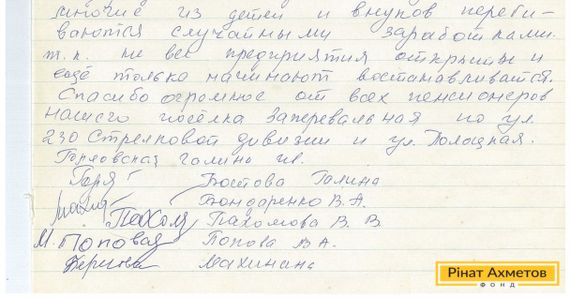 многие из детей и внуков переби-
ваются случайными заработками.
т.к. не все предприятия открыты и
ещё только начинают востанавливатся.
Спасибо огромное от всех пенсионеров
нашего посёлка Заперевальная по ул.
230 Стрелковой дивизии и ул. Полоцкая.
Горловская Галина
Бостова Галина
Бондаренко В.А.
Пахомова В. В.
М. Попова Попова В А.
Рінат Ахметов
ФОНД